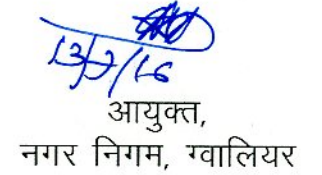 13/7/16
आयुक्त,
नगर निगम, ग्वालियर